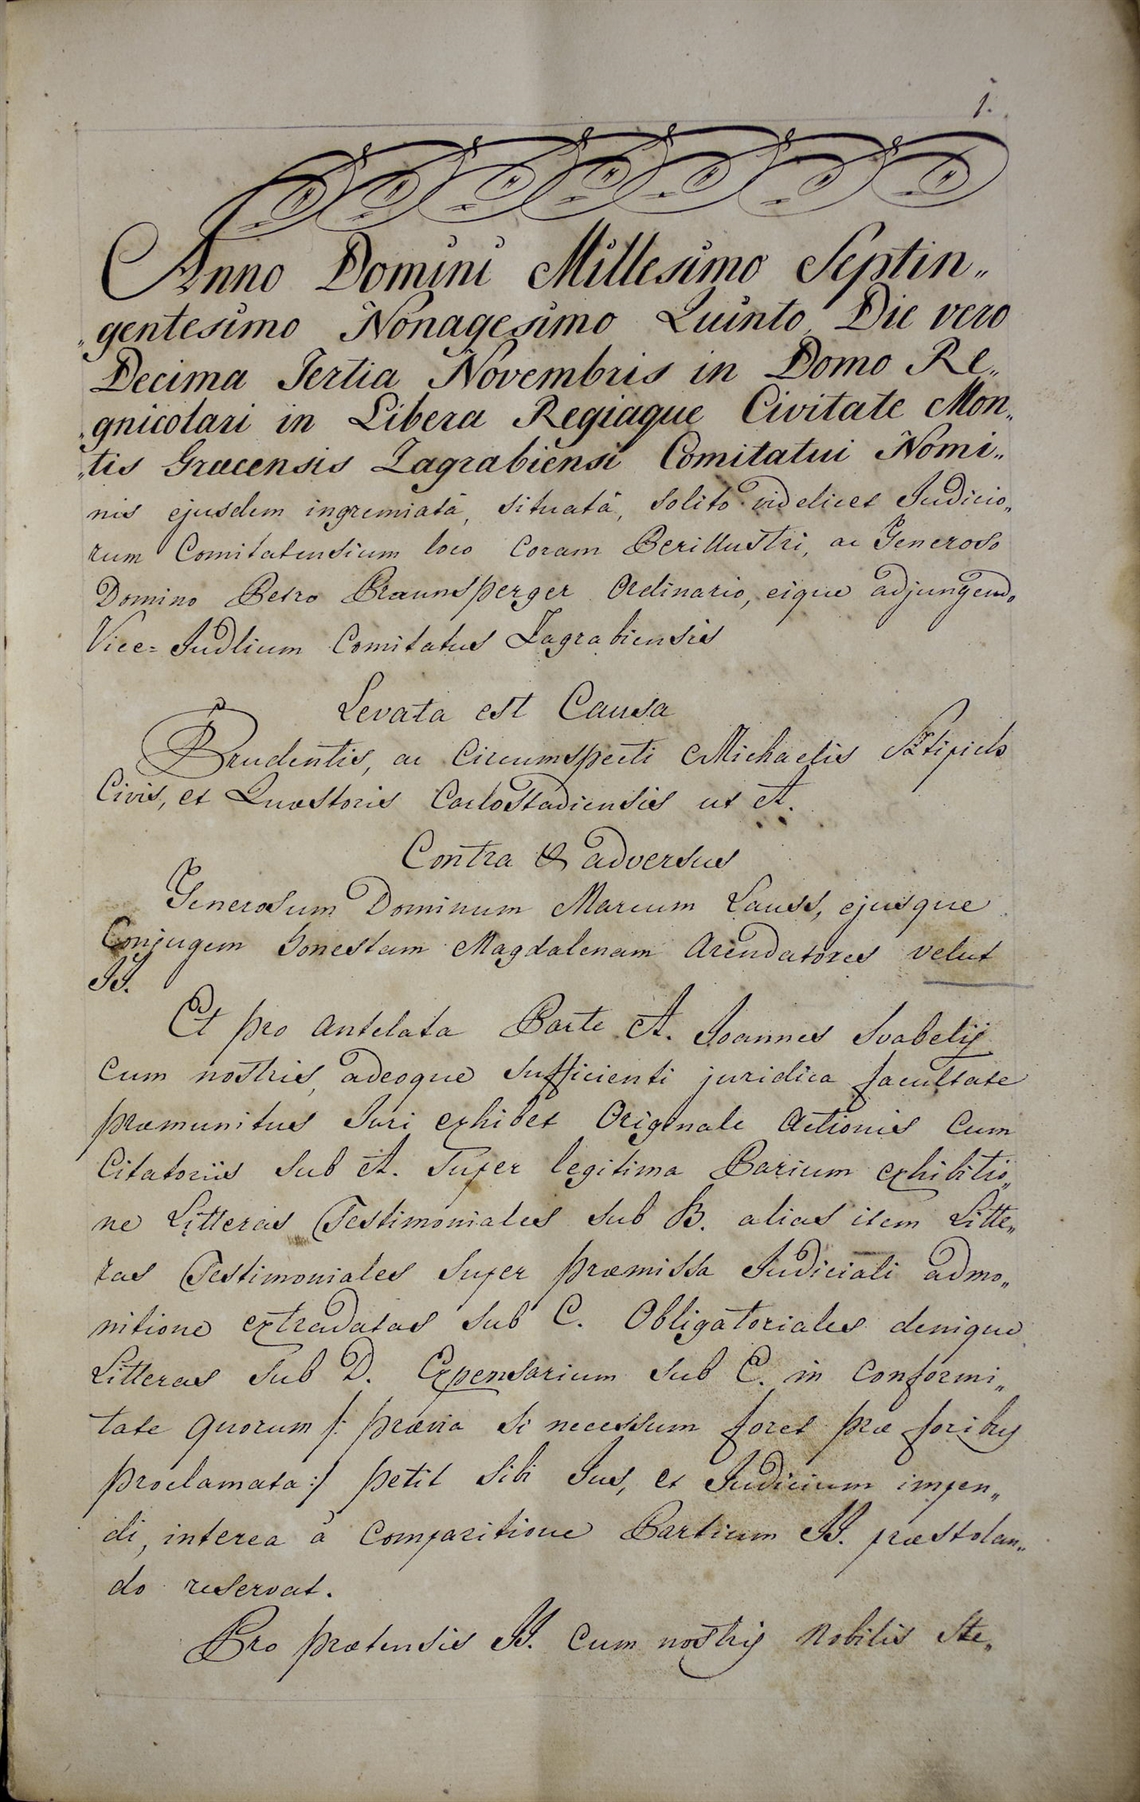 1.
Anno Domini Millesimo Septin„
„gentesimo Nonagesimo Quinto, Die vero
Decima Tertia Novembris in Domo Re„
„gnicolari in Libera Regiaque Civitate Mon„
„tis Græcensis Zagrabiensi Comitatui Nomi„
nis ejusdem ingremiatâ, situatâ, solito videlicet Judicio„
rum Comitatensium loco Coram Perillustri, ac Generoso
Domino Petro Praunsperger Ordinario, eique adjungendo
Vice= Judlium Comitatus Zagrabiensis
Levata est Causa
Prudentis, ac Circumspecti Michaelis
Civis, et Quæstoris Carlostadiensis ut A.
Contra & adversus
Generosum Dominum Marcum Lauss, ejusque
Conjugem Honestam Magdalenam Arendatores velut
II.
Et pro antelata Parte A. Joannes Svabelij
cum nostris, adeoque sufficienti juridica facultate
præmunitus Juri exhibet Originale Actionis Cum
Citatoriis sub A. Super legitima Parium exhibitio„
ne Litteras Testimoniales sub B. alias item Litte„
ras Testimoniales super præmissa Judiciali admo„
nitione extradatas sub C. Obligatoriales denique
Litteras sub D. Expensarium sub E. in Conformi„
tate quorum /: prævia si necessum foret præ foribus
proclamata :/ petit sibi Jus, et Judicium impen„
di, interea à Comparitione Partium II. præstolan„
do reservat.
Pro prætensis II. Cum nostris Nobilis Ste„